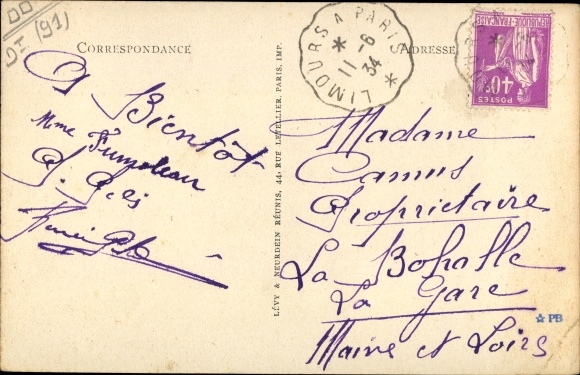 (91)
CORRESPONDANCE
ADRESSE
LIMOURS A PARIS
11-6
34
RÉPUBLIQUE FRANÇAISE
40c
POSTES
A Bientôt
Mme
LÉVY & NEURDEIN RÉUNIS, 44, RUE LETELLIER, PARIS, IMP.
Madame
Camus
Propriétaire
La Bohalle
La Gare
Maine et Loire
PB